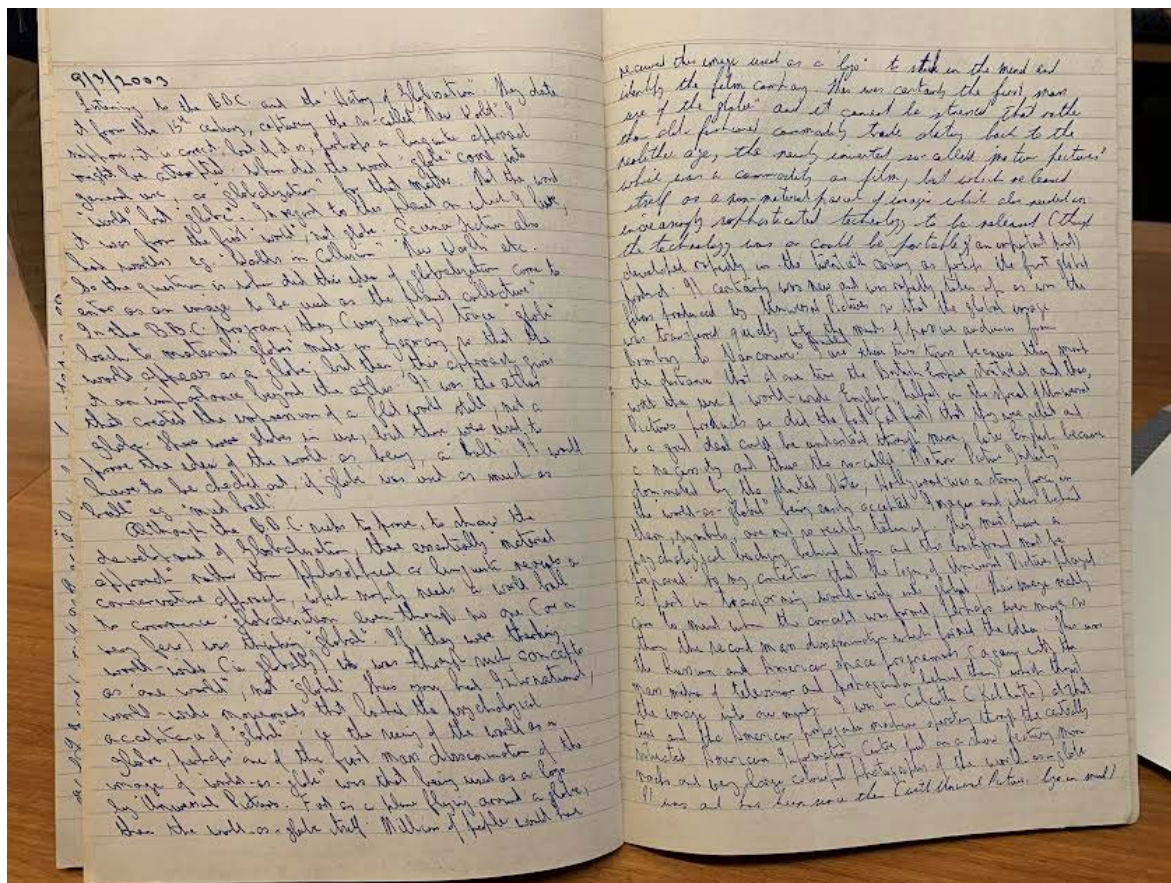 9/3/2003
Listening to the B.B.C. and the "History of Globalisation". They date
it from the 15th century, capturing the so-called "New World". I
suppose, it is correct, but if it is, perhaps a linguistic approach
might be attempted. When did the word "globe" come into
general use, or "globalization" for that matter. Not the word
"world" but "globe". In regard to this planet on which I live,
it was from the first "world", not globe. Science fiction also
had worlds eg. "Worlds in Collision" "New Worlds" etc.
So the question is when did this idea of globalization come to
enter as an image to be used as the planet collective"
In the B.B.C. program, they (very simply) trace "globe"
back to material globes made in Germany so that the
world appears as a globe but then, this approach gives
it an importance beyond the atlas. It was the atlas
that created the impression of a flat world still, not a
globe. There were globes in use, but these were used to
prove the idea of the world as being, a "ball". It would
have to be checked out, if "globe" was used as much as
"ball" eg "mud ball".
Although the B.B.C. seeks to prove, to show the
development of Globalisation, their essentially "material
approach" rather than philosophical or linguistic reveals a
conservative approach, which simply needs a world ball
to commence "globalization" even though no one (or a
very few) was thinking "global". If they were thinking
world-wide (ie globally) it was through such concepts
as "one world", not "global". Thus you had International,
world-wide movements that lacked the psychological
acceptance of "global" - ie the seeing of the world as a
globe, perhaps one of the first mass dissemination of the
image of "world-as-globe" was that being used as a logo
by Universal Pictures. First as a plane flying around a globe,
then the world-as-globe itself. Millions of people would have
received this image used as a "logo" to stick in the mind and
identify the film company. This was certainly the first, mass
use of the globe" and it cannot be stressed that rather
than old-fashioned commodity trade dating back to the
neolithic age, the newly invented so-called "motion pictures"
which was a commodity as film, but which released
itself as a non-material parcel of images which also needed an
increasingly sophisticated technology to be released (though
the technology was or could be portable, an important part)
developed rapidly in the twentieth century as perhaps the first global
product. It certainly was new and was rapidly taken up as were the
films produced by Universal Pictures so that the global image
was transferred quickly into the minds of passive audiences from
Bombay to Vancouver. I use these two towns because they mark
the distance that at one time the British Empire stretched and thus,
with the use of world-wide English, helped in the spread of Universal
Pictures products as did the fact (at first) that they were silent and
to a great deal could be understood through mime, later English became
a necessity and thus the so-called "Motion Picture Industry"
dominated by the United States, Hollywood was a strong force in
the "world-as-global" being easily accepted. Images and ideas behind
them, symbols, are not so readily taken up. They must have a
psychological backing behind them and the background must be
prepared. It is my contention that the logo of Universal Pictures played
a part in transforming world-wide into global. This image really
came to mind when the concept was formed, perhaps even more so
than the second mass dissemination which formed the idea. This was
the Russian and American space programmes (again with the
mass media of television and propaganda behind them) which thrust
the image into our minds. I was in Calcutta (Kolkata) at that
time and the American propaganda machine operating through the centrally
situated American Information Centre put on a show featuring moon
rocks and very large colourful photographs of the world-as-globe
It was and has been since then (with Universal Pictures logo in mind)